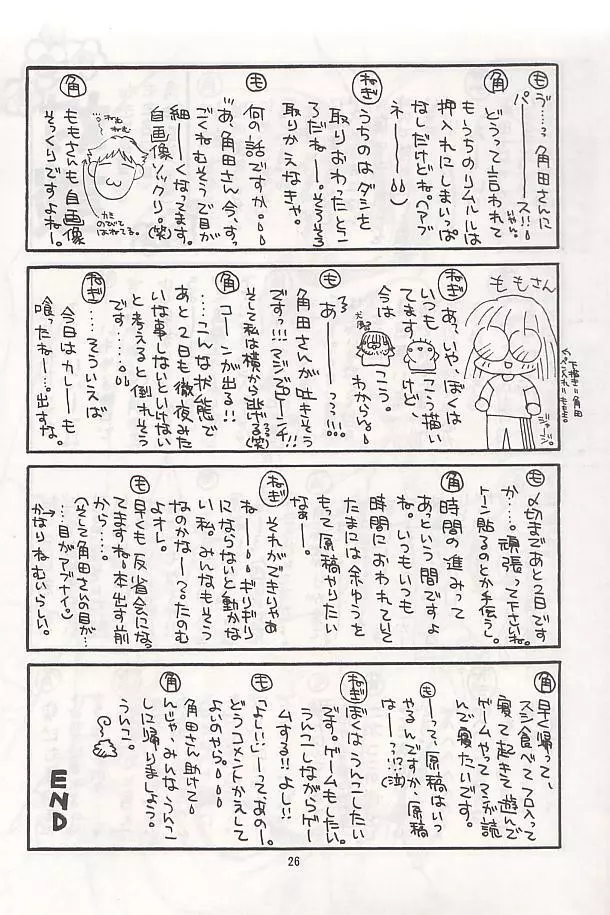 も ゔ…っ角田さんに
パ――――ス!!
角 どうって言われて
もうちのリムルルは
押入れにしまいっぱ
なしだけどね。(アブ
ネ―――)
ねぎ うちのはダシを
取りおわったとこ
ろだねー。そろそろ
取りかえなきゃ。
も 何の話ですか。
あ、角田さん今、すっ
ごくねむそうで目が
細――くなってます。
自画像ソックリ。(笑)
ねむ
ねむ
カミ
のびて
はねてる。
角 ももさんも自画像
そっくりですよねー。
ももさん
ジャージ。
下描き:角田
ペン入れ:もも
ねぎ あっ、いや、ぼくは
いつも こう描い
てます けど、
今は こう。
わからん。
も あ――っっ!!!
角田さんが吐きそう
ですっ!!!マジでピーンチ!!
そして私は横から逃げる(笑)
角 コーンが出る!!
……こんな状態で
あと2日も徹夜みた
いな事しないといけない
と考えると倒れそう
です……
ねぎ ……そういえば
今日はカレーも
喰ったねー…。出すな。
も 〆切まであと2日です
か…。頑張って下さいね。
トーン貼るのとか手伝うし。
角 時間の進みって
あっという間ですよ
ね。いつもいつも
時間におわれていて
たまには余ゆうを
もって原稿やりたい
なぁー。
ねぎ それができりゃあ
ねー――ギリギリ
にならないと動かな
い私。みんなもそう
なのかなー?たのむ
よオレ。
も 早くも反省会になっ
てますね。本出す前
から……。
(そして角田さんの目が…
…目がアブナイ。)
かなりねむいらしい。
角 早く帰って、
スシ食べてフロ入って
寝て起きて遊んで
ゲームやってマンガ読
んで寝たいです。
も ―って、原稿はいつ
やるんですか、原稿
は――っ!?(泣)
ねぎ ぼくはうんこしたい
です。ゲームもしたい。
うんこしながらゲー
ムする!!よし!!
も 「よし!」―ってあのー。
どうコメントかえして
よいのやら。
角田さん助けて。
角 んじゃ、みんなうんこ
しに帰りましょう。
うんこ。
END
26